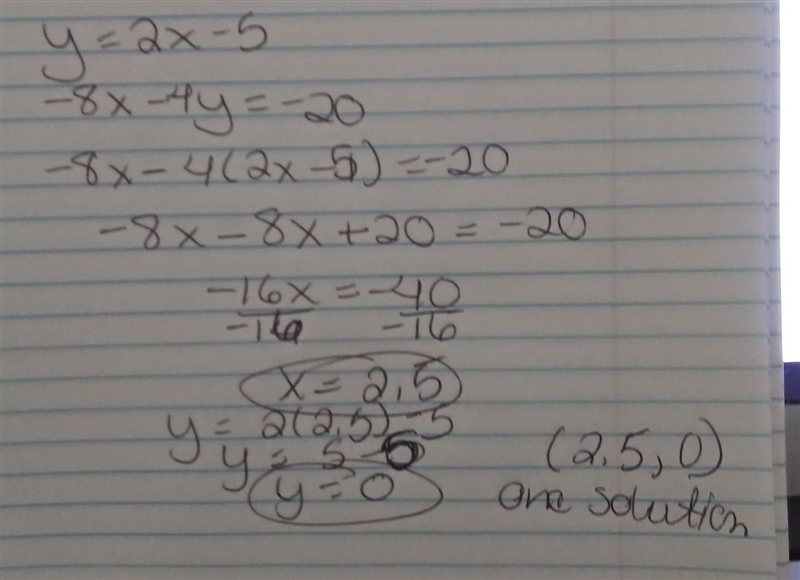 y = 2x - 5
-8x - 4y = -20
-8x - 4(2x - 5) = -20
-8x - 8x + 20 = -20
-16x = -40
-16 -16
x = 2.5
y = 2(2.5) - 5
y = 5 - 5
y = 0
(2.5, 0)
one solution